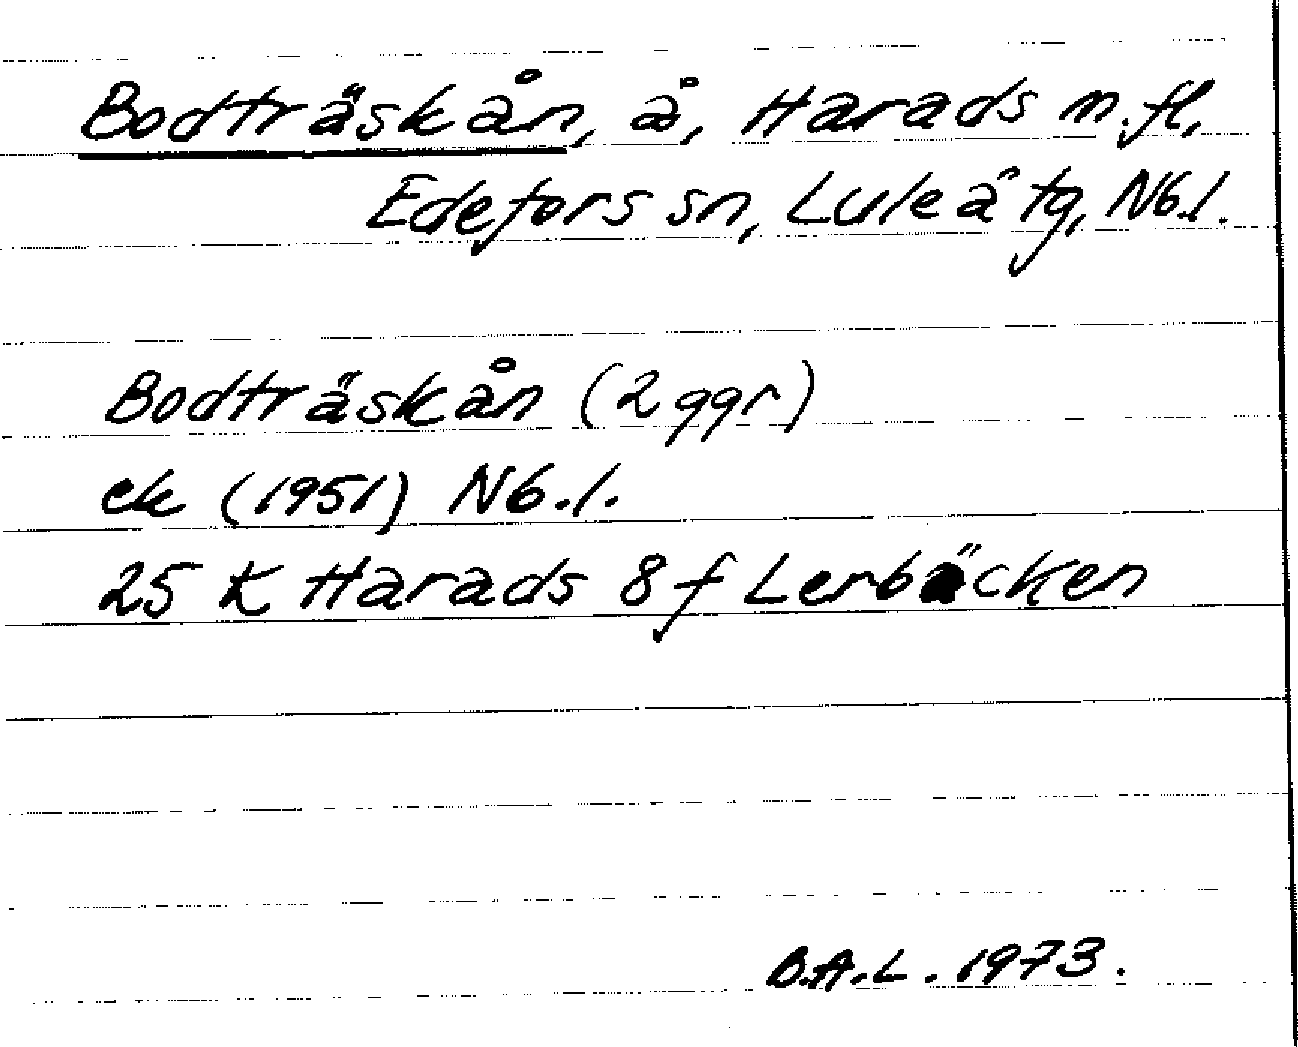 Bodträskån, å, Harads m.fl,
Edefors sn, Luleå tg, Nb.l.
Bodträskån (2 ggr)
ek (1951) Nb.l.
25 K Harads 8 f Lerbäcken
B.A.L. 1973.